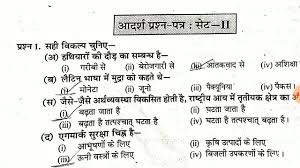 आदर्श प्रश्न-पत्र : सेट—II
प्रश्न 1. सही विकल्प चुनिए—
(अ) हथियारों की दौड़ का सम्बन्ध है—
(i) गरीबी से (ii) बेरोजगारी से (iii) आतंकवाद से (iv) अशिक्षा
(ब) लैटिन भाषा में मुद्रा को कहते थे—
(i) मोनेटा (ii) जूनो (iii) पैक्यूनिया (iv) पैकस।
(स) जैसे-जैसे अर्थव्यवस्था विकसित होती है, राष्ट्रीय आय में तृतीयक क्षेत्र का अं
(i) बढ़ता जाता है (ii)
(iii) घटता है तत्पश्चात् बढ़ता है (iv) बढ़ता है तत्पश्चात् घटता है।
(द) एगमार्क सुरक्षा चिह्न है—
(i) आभूषणों के लिए (ii) कृषि उत्पादों के लिए
(iii) ऊनी वस्त्रों के लिए (iv) बिजली उपकरणों के लिए।